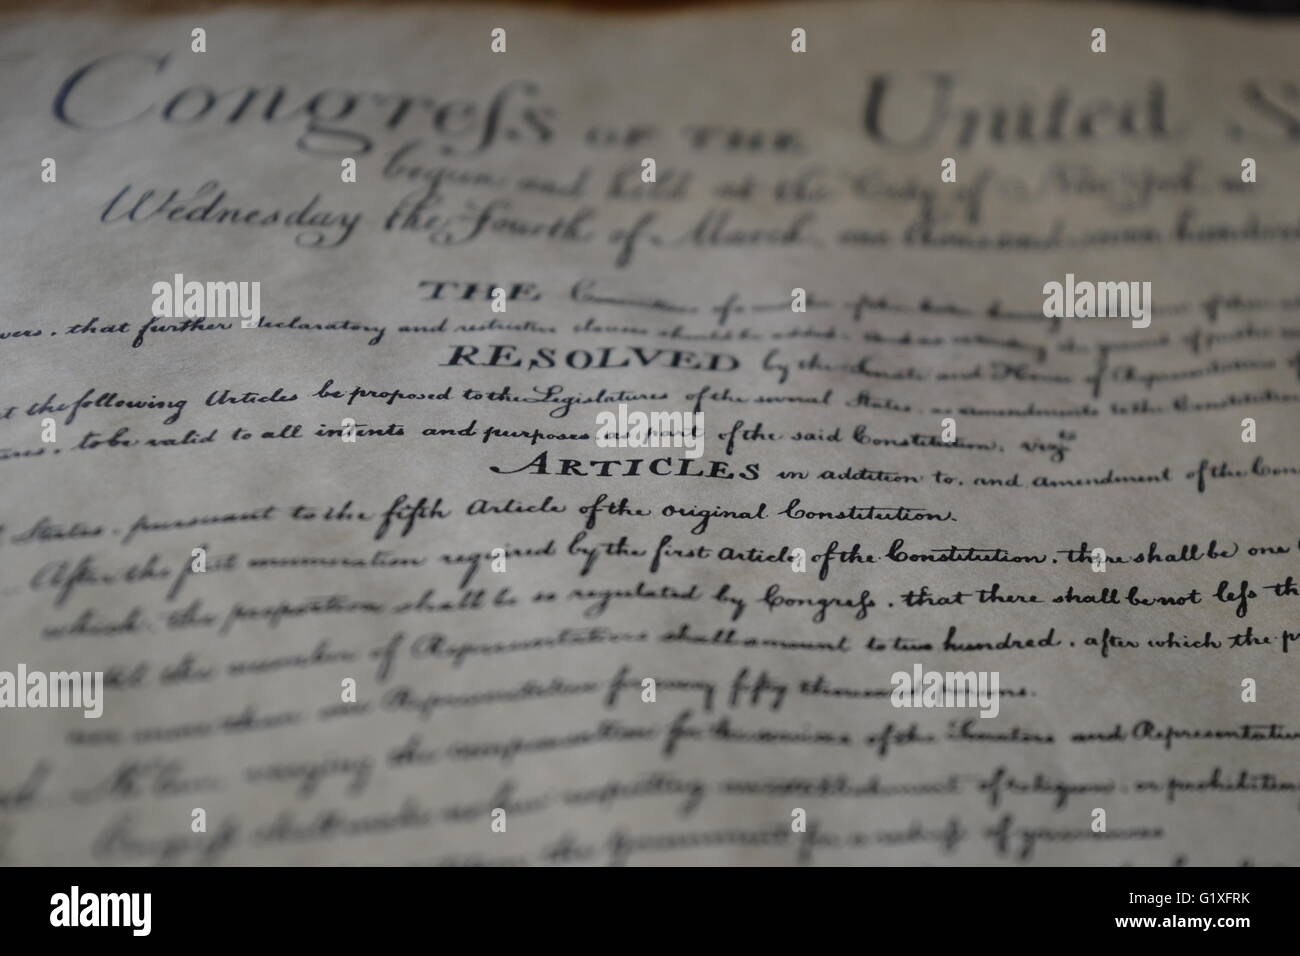 Congreſs OF THE United S
begun and held at the City of New York on
Wednesday the Fourth of March, one thousand seven hundred
THE
wers, that further declaratory and restrictive clauses should be added, And as extending the ground of public
RESOLVED by the Senate and House of Representatives of
t the following Articles be proposed to the Legislatures of the several States, as amendments to the Constitution
to be valid to all intents and purposes, as part of the said Constitution, vizt
ARTICLES in addition to, and amendment of the Con
States, pursuant to the fifth Article of the original Constitution.
After the first enumeration required by the first Article of the Constitution, there shall be one
which, the proportion shall be so regulated by Congreſs, that there shall be not leſs th
until the number of Representatives shall amount to two hundred, after which the p
nor more than one Representative for every fifty thousand persons.
No law, varying the compensation for the services of the Senators and Representative
Congreſs shall make no law respecting an establishment of religion, or prohibiting
the government for a redreſs of grievances
alamy
a
alamy stock photo
G1XFRK
www.alamy.com